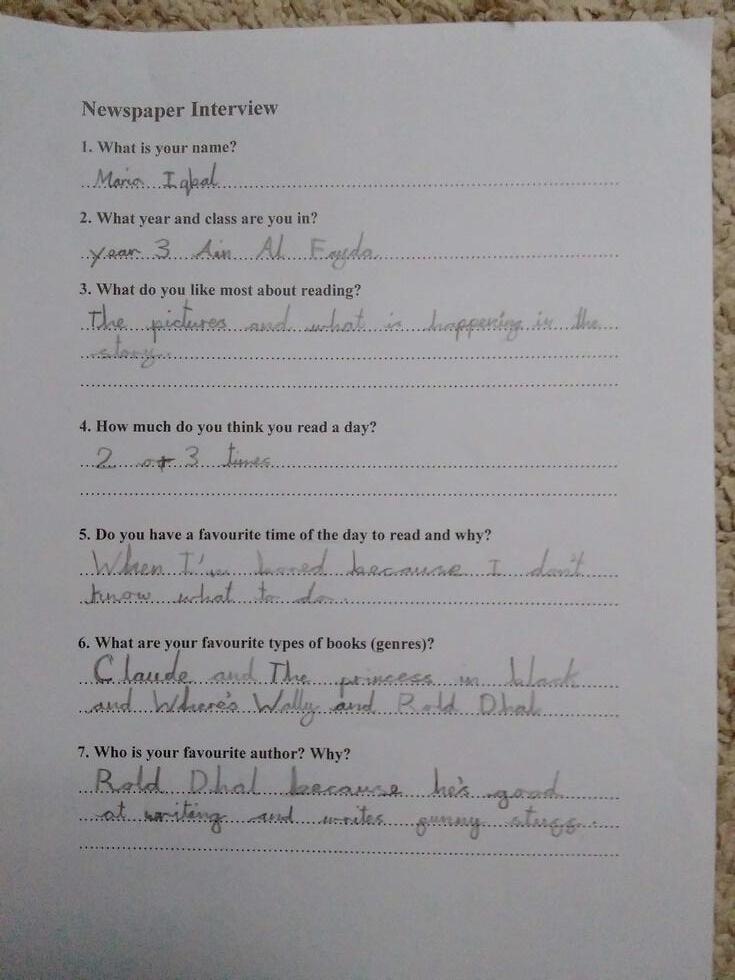 Newspaper Interview
1. What is your name?
Maria Iqbal
2. What year and class are you in?
year 3 Ain Al Fayda
3. What do you like most about reading?
The pictures and what is happening in the
story.
4. How much do you think you read a day?
2 or 3 times
5. Do you have a favourite time of the day to read and why?
When I'm bored because I don't
know what to do.
6. What are your favourite types of books (genres)?
Claude and The princess in black
and Where's Wally and Rold Dhal
7. Who is your favourite author? Why?
Rold Dhal because he's good
at writing and writes funny stuff.